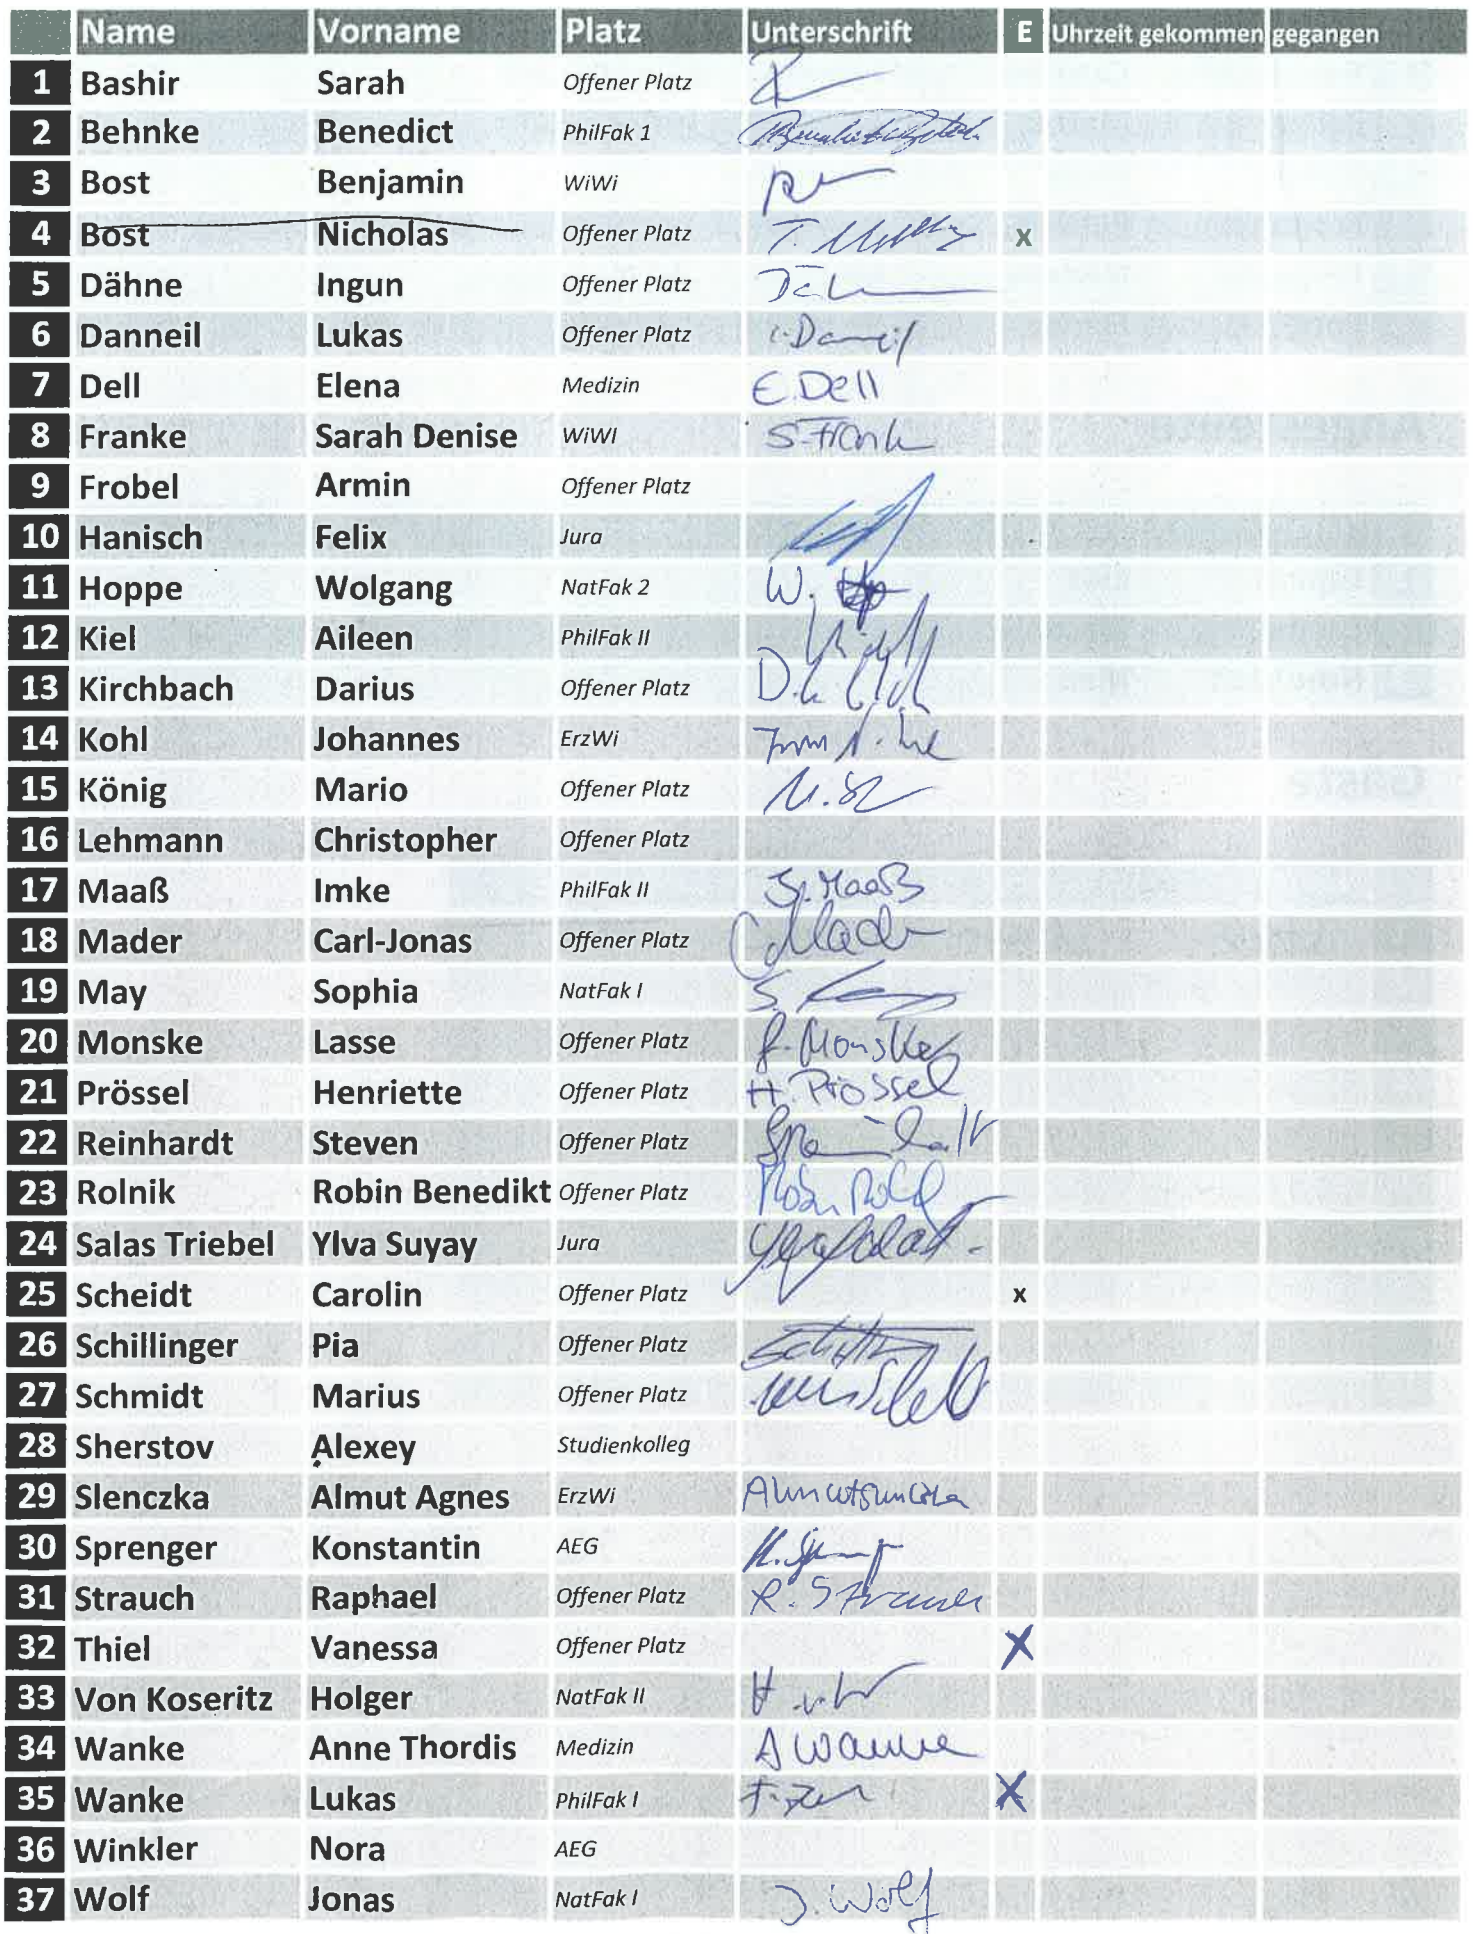 Name Vorname Platz Unterschrift E Uhrzeit gekommen gegangen
1 Bashir Sarah Offener Platz
2 Behnke Benedict PhilFak 1
3 Bost Benjamin WiWi
4 Bost Nicholas Offener Platz x
5 Dähne Ingun Offener Platz
6 Danneil Lukas Offener Platz
7 Dell Elena Medizin E. Dell
8 Franke Sarah Denise WiWI
9 Frobel Armin Offener Platz
10 Hanisch Felix Jura
11 Hoppe Wolgang NatFak 2 W.
12 Kiel Aileen PhilFak II
13 Kirchbach Darius Offener Platz
14 Kohl Johannes ErzWi
15 König Mario Offener Platz
16 Lehmann Christopher Offener Platz
17 Maaß Imke PhilFak II J. Maaß
18 Mader Carl-Jonas Offener Platz
19 May Sophia NatFak I
20 Monske Lasse Offener Platz L. Monske
21 Prössel Henriette Offener Platz H. Prössel
22 Reinhardt Steven Offener Platz
23 Rolnik Robin Benedikt Offener Platz
24 Salas Triebel Ylva Suyay Jura
25 Scheidt Carolin Offener Platz x
26 Schillinger Pia Offener Platz
27 Schmidt Marius Offener Platz
28 Sherstov Alexey Studienkolleg
29 Slenczka Almut Agnes ErzWi
30 Sprenger Konstantin AEG
31 Strauch Raphael Offener Platz R. Strauch
32 Thiel Vanessa Offener Platz X
33 Von Koseritz Holger NatFak II
34 Wanke Anne Thordis Medizin A Wanke
35 Wanke Lukas PhilFak I X
36 Winkler Nora AEG
37 Wolf Jonas NatFak I J. Wolf